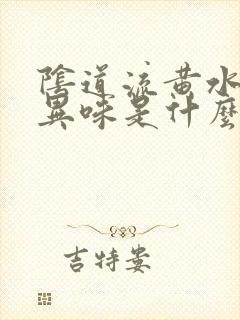 陰道流黃水
異味是什麼
吉特婁